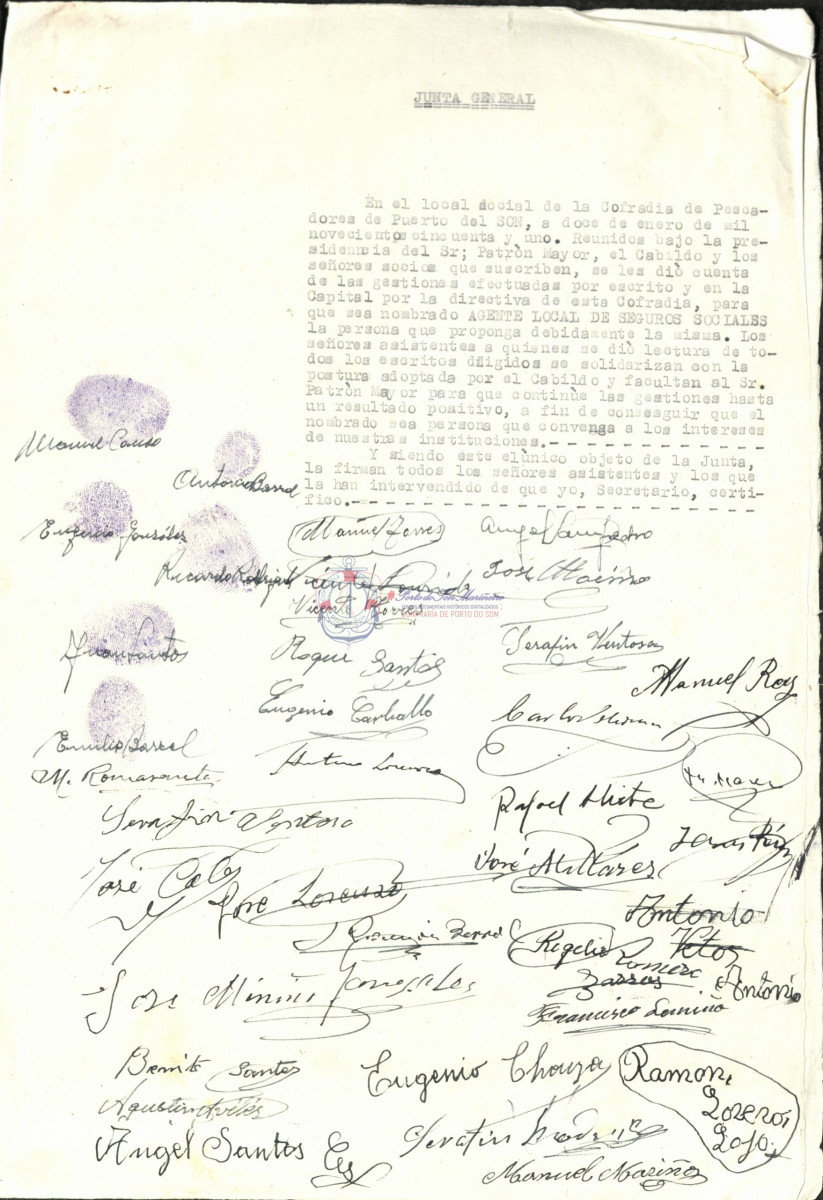 JUNTA GENERAL
En el local social de la Cofradia de Pesca-
dores de Puerto del SON, a doce de enero de mil
novecientos cincuenta y uno. Reunidos bajo la pre-
sidencia del Sr; Patròn Mayor, el Cabildo y los
señores socios que suscriben, se les diò cuenta
de las gestiones efectuadas por escrito y en la
Capital por la directiva de esta Cofradia, para
que sea nombrado AGENTE LOCAL DE SEGUROS SOCIALES
la persona que proponga debidamente la misma. Los
señores asistentes a quienes se diò lectura de to-
dos los escritos diigidos se solidarizan con la
postura adoptada por el Cabildo y facultan al Sr.
Patròn Mayor para que continùe las gestiones hasta
un resultado positivo, a fin de conseguir que el
nombrado sea persona que convenga a los intereses
de nuestras instituciones.- - - - - - - - - - - -
Y siendo este elùnico objeto de la Junta,
la firman todos los señores asistentes y los que
la han intervendido de que yo, Secretario, certi-
fico.- - - - - - - - - - - - - - - - - - - - - -
Manuel
Antonio Barral
Eugenio Gonzáles Manuel Torres Angel Sampedro
Ricardo Vicente José Mariño
Porto do Son Mariñeiro
Vicente Torres
CONFRARÍA DE PORTO DO SON
Juan Santos Roque Santos Serafin Ventosa
Manuel Roy
Eugenio Carballo Carlos
Emilio Barral
M. Romarenta Antonio Lourido
Serafin Ventosa Rafael
José José Millares
José Lorenzo
Antonio
Rogelio Romero
Barros Antonio
José González
Francisco
Benito Santos Eugenio Chouza Ramon
Agustin Avilés Loreros
Lojo
Angel Santos Serafin
Manuel Mariño